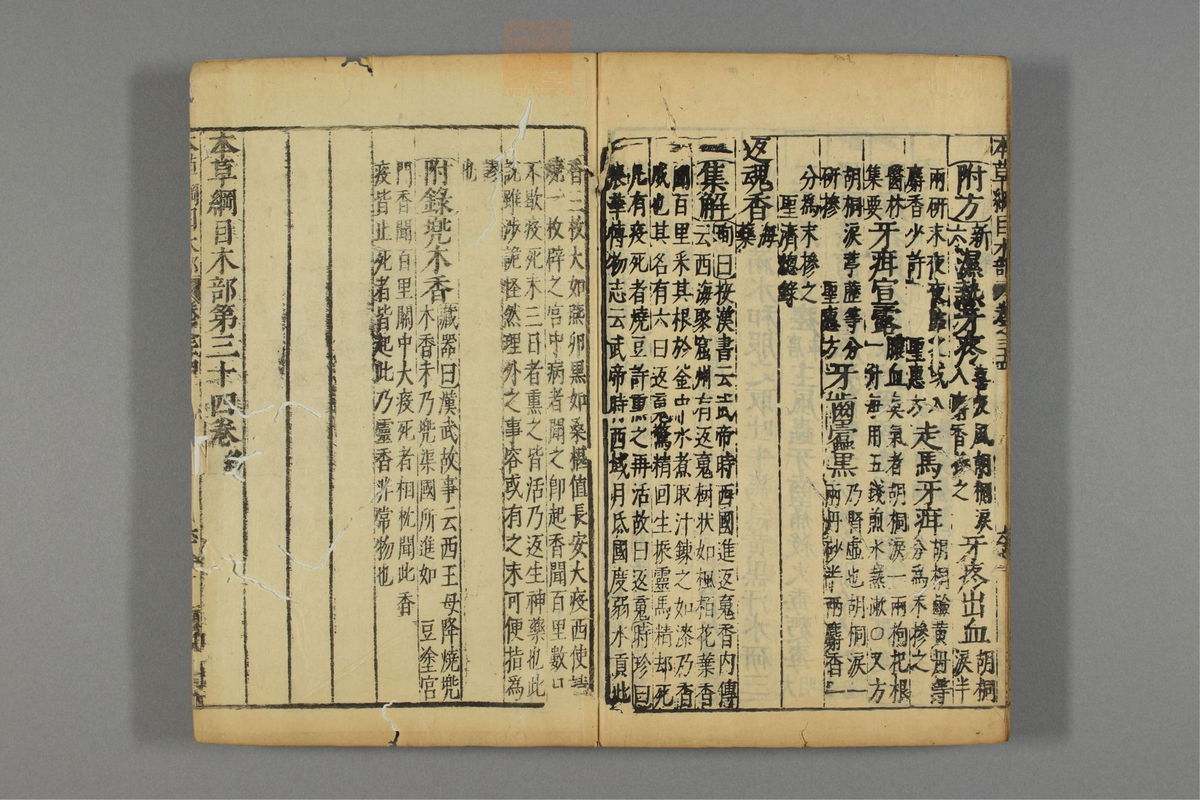 附方新六濕熱牙疼喜吸風胡桐淚入麝香摻之牙疼出血胡桐淚半
兩研末夜夜貼之或入麝香少許聖惠方走馬牙疳胡桐鹼黃丹等分為末摻之
醫林集要牙疳宣露膿血臭氣者胡桐淚一兩枸杞根一升每用五錢煎水熱漱〇又方
胡桐淚葶藶等分研摻聖惠方牙齒蠹黑乃腎虛也胡桐淚一兩丹砂半兩麝香一
分為末摻之聖濟總錄
返魂香海藥
集解珣曰按漢書云武帝時西國進返魂香內傳
云西海聚窟州有返魂樹狀如楓柏花葉香
聞百里采其根於釜中水煮取汁鍊之如漆乃香
成也其名有六曰返魂驚精回生振靈馬精却死
凡有疫死者燒豆許熏之再活故曰返魂時珍曰
張華博物志云武帝時西域月氏國度弱水貢此
香三枚大如燕卵黑如桑椹值長安大疫西使請
燒一枚辟之宮中病者聞之即起香聞百里數日
不歇疫死未三日者熏之皆活乃返生神藥也此
說雖涉詭怪然理外之事容或有之未可便指為
謬也
附錄兜木香藏器曰漢武故事云西王母降燒兜木香末乃兜渠國所進如豆塗宮
門香聞百里關中大疫死者相枕聞此香
疫皆止死者皆起此乃靈香非常物也
本草綱目木部第三十四卷終